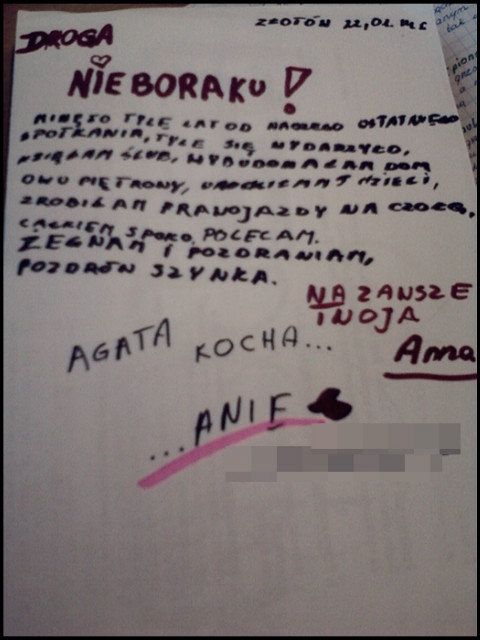 DROGA
NIEBORAKU!
MINĘŁO TYLE LAT OD NASZEGO OSTATNIEGO
SPOTKANIA, TYLE SIĘ WYDARZYŁO,
WZIĘŁAM ŚLUB, WYBUDOWAŁAM DOM
PIĘTROWY, DZIECI,
ZROBIŁAM PRAWOJAZDY NA CZOŁG,
CAŁKIEM SPOKO, POLECAM.
ŻEGNAM I POZDRAWIAM,
POZDRÓW SZYNKA.
NA ZAWSZE
TWOJA
Anna
AGATA KOCHA...
...ANIE